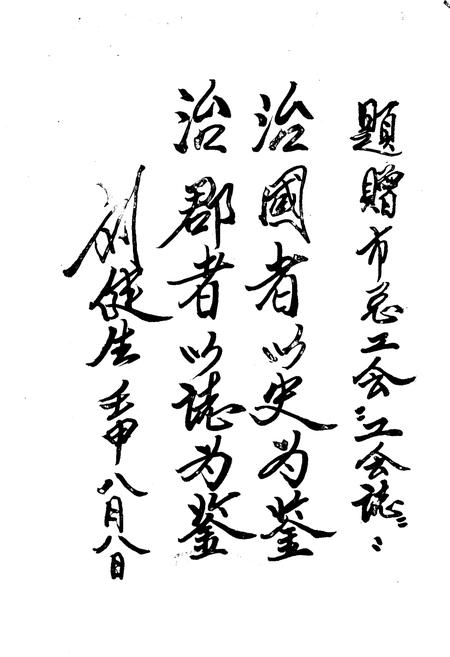 題贈市总工会“工会誌”：
治國者以史为鉴
治郡者以誌为鉴
刘健生 壬申八月八日